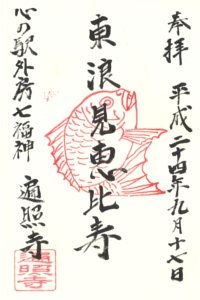 奉拝 平成二十四年九月十七日
東浪見恵比寿
心の駅外房七福神 遍照寺
遍照寺